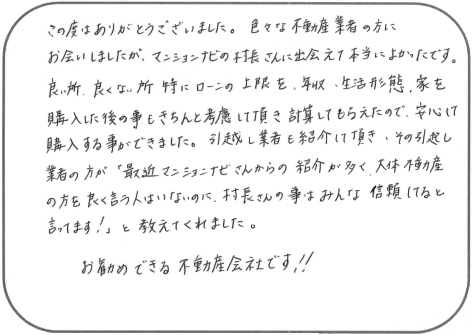 この度はありがとうございました。色々な不動産業者の方に
お会いしましたが、マンションナビの村長さんに出会えて本当によかったです。
良い所、良くない所 特にローンの上限を、年収、生活形態、家を
購入した後の事もきちんと考慮して頂き計算してもらえたので、安心して
購入する事ができました。引越し業者も紹介して頂き、その引越し
業者の方が「最近マンションナビさんからの紹介が多く、大体不動産
の方を良く言う人はいないのに、村長さんの事はみんな信頼してると
言ってます!」と教えてくれました。
お勧めできる不動産会社です!!